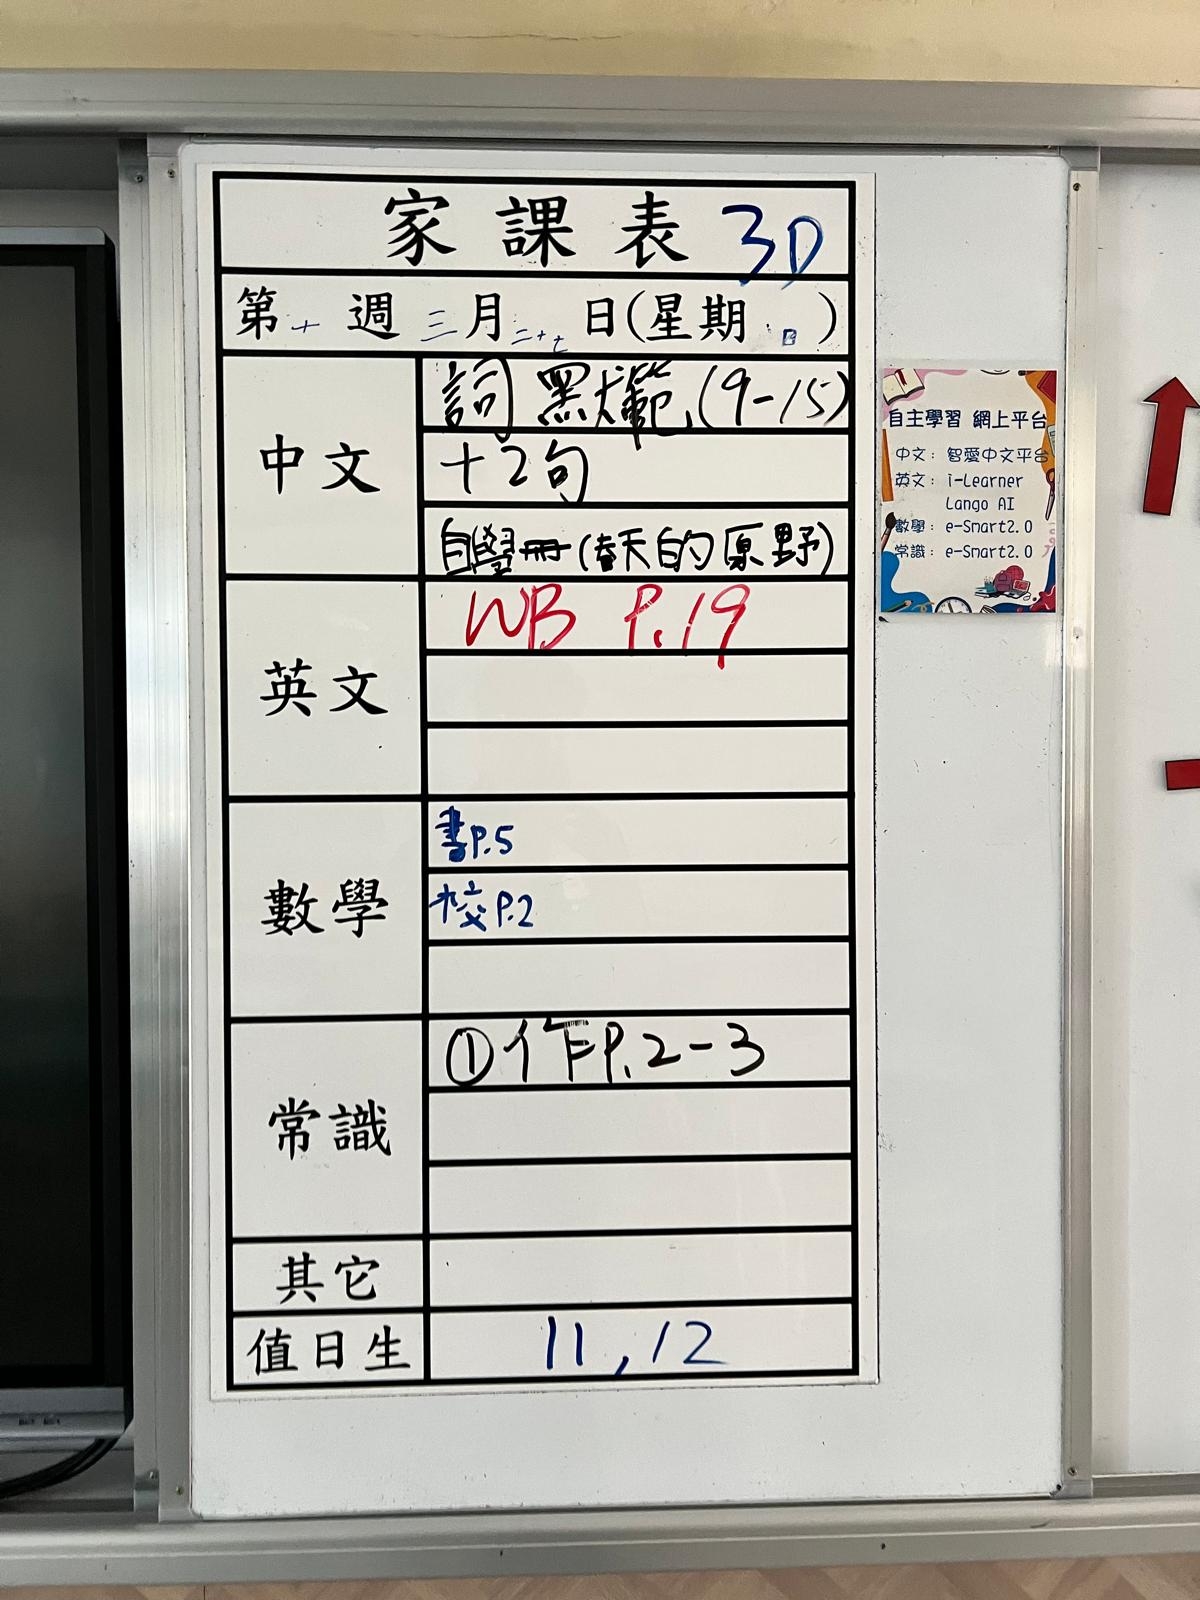 家課表 3D
第十週 三月二十七日(星期四)
中文
詞 黑犬範 (9-15)
+2句
自學冊(春天的原野)
英文
WB P.19
數學
書P.5
校P.2
常識
①作P.2-3
其它
值日生
11, 12
自主學習 網上平台
中文: 智愛中文平台
英文: i-Learner
Lango AI
數學: e-Smart2.0
常識: e-Smart2.0